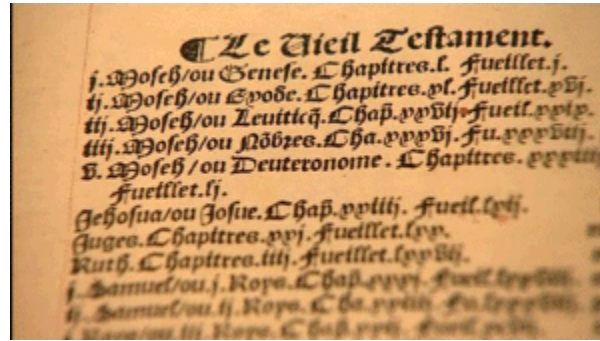 ¶Le Uieil Testament.
j. Moseh/ou Genese. Chapitres.l. Fueillet.j.
ij. Moseh/ou Exode. Chapitres.xl. Fueillet.xvj.
iij. Moseh/ou Leuiticq̃. Chap̃. xxvij. Fueil.xxix.
iiij. Moseh/ou Nõbres. Cha. xxxvj. Fu. xxxviij.
v. Moseh/ou Deuteronome. Chapitres.
Fueillet.lj.
Jehosua/ou Josue. Chap̃. xxiiij. Fueil.lxij.
Juges. Chapitres. xxj. Fueillet.lxx.
Ruth. Chapitres.iiij. Fueillet.lxxvij.
j. Samuel/ou.j. Roys. Chap̃. xxxj. Fueil.
ij. Samuel/ou.ij. Roys. Cha. xxiiij. Fu.
j. Roys/ou.iij. Roys. Chap̃. xxij. Fueil.